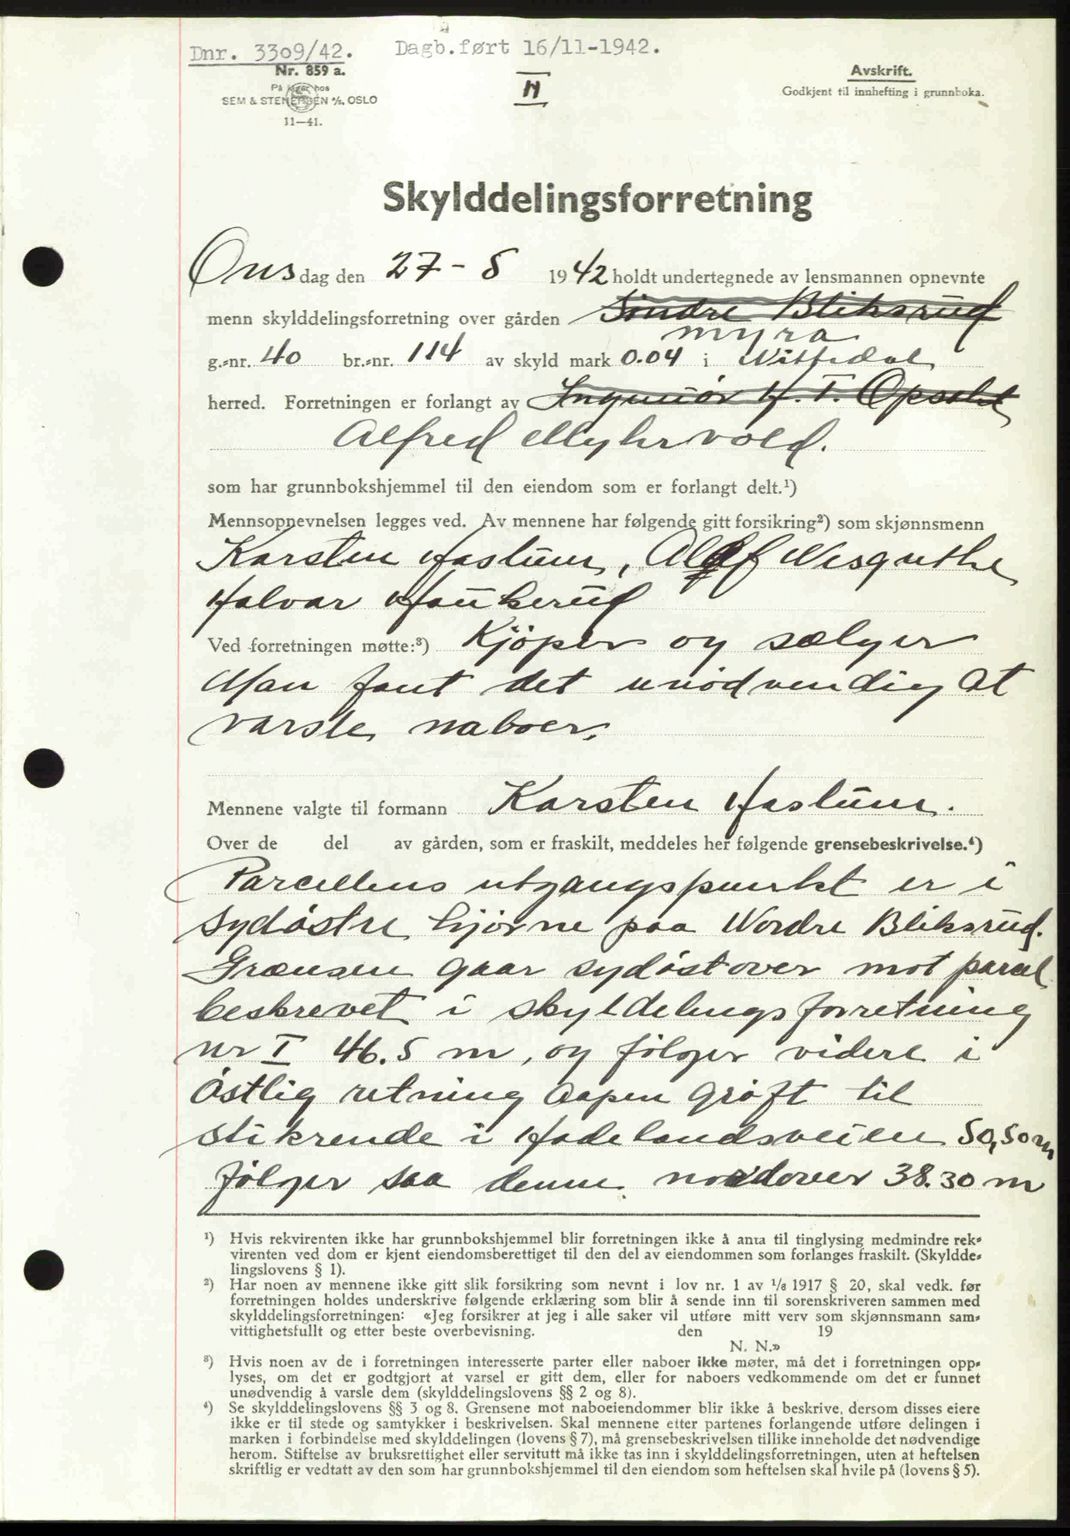 Dnr. 3309/42. Dagb.ført 16/11-1942.
Nr. 859 a.
På lager hos
SEM & STENERSEN A/S, OSLO
11—41.
II
Avskrift.
Godkjent til innhefting i grunnboka.
Skylddelingsforretning
Onsdag den 27 - 8 1942 holdt undertegnede av lensmannen opnevnte
menn skylddelingsforretning over gården Søndre Bliksrud
myra
g.-nr. 40 br.-nr. 114 av skyld mark 0.04 i Nittedal
herred. Forretningen er forlangt av Ingeniør H. T. Opsahl
Alfred Myhrvold.
som har grunnbokshjemmel til den eiendom som er forlangt delt.¹)
Mennsopnevnelsen legges ved. Av mennene har følgende gitt forsikring²) som skjønnsmenn
Karsten Haslum, Olaf
Halvar Haukerud
Ved forretningen møtte:³) Kjøper og sælger
Man fant det unødvendig at
varsle naboer.
Mennene valgte til formann Karsten Haslum.
Over de del av gården, som er fraskilt, meddeles her følgende grensebeskrivelse.⁴)
Parcellens utgangspunkt er i
sydøstre hjørne paa Nordre Bliksrud.
Grænsen gaar sydøstover mot parcel
beskrevet i skyldelingsforretning
nr I 46.5 m, og følger videre i
østlig retning aapen grøft til
stikrende i Hadelandsveien 50,50 m
følger saa denne nordover 38.30 m
¹) Hvis rekvirenten ikke har grunnbokshjemmel blir forretningen ikke å anta til tinglysing medmindre rek-
virenten ved dom er kjent eiendomsberettiget til den del av eiendommen som forlanges fraskilt. (Skyldde-
lingslovens § 1).
²) Har noen av mennene ikke gitt slik forsikring som nevnt i lov nr. 1 av 1/6 1917 § 20, skal vedk. før
forretningen holdes underskrive følgende erklæring som blir å sende inn til sorenskriveren sammen med
skylddelingsforretningen: «Jeg forsikrer at jeg i alle saker vil utføre mitt verv som skjønnsmann sam-
vittighetsfullt og etter beste overbevisning. den 19
N. N.»
³) Hvis noen av de i forretningen interesserte parter eller naboer ikke møter, må det i forretningen opp-
lyses, om det er godtgjort at varsel er gitt dem, eller for naboers vedkommende om det er funnet
unødvendig å varsle dem (skylddelingslovens §§ 2 og 8).
⁴) Se skylddelingslovens §§ 3 og 8. Grensene mot naboeiendommer blir ikke å beskrive, dersom disses eiere
ikke er til stede og samtykker i beskrivelsen. Skal mennene etter partenes forlangende utføre delingen i
marken i forbindelse med skylddelingen (lovens § 7), må grensebeskrivelsen tillike inneholde det nødvendige
herom. Stiftelse av bruksrettighet eller servitutt må ikke tas inn i skylddelingsforretningen, uten at heftelsen
skriftlig er vedtatt av den som har grunnbokshjemmel til den eiendom som heftelsen skal hvile på (lovens § 5).